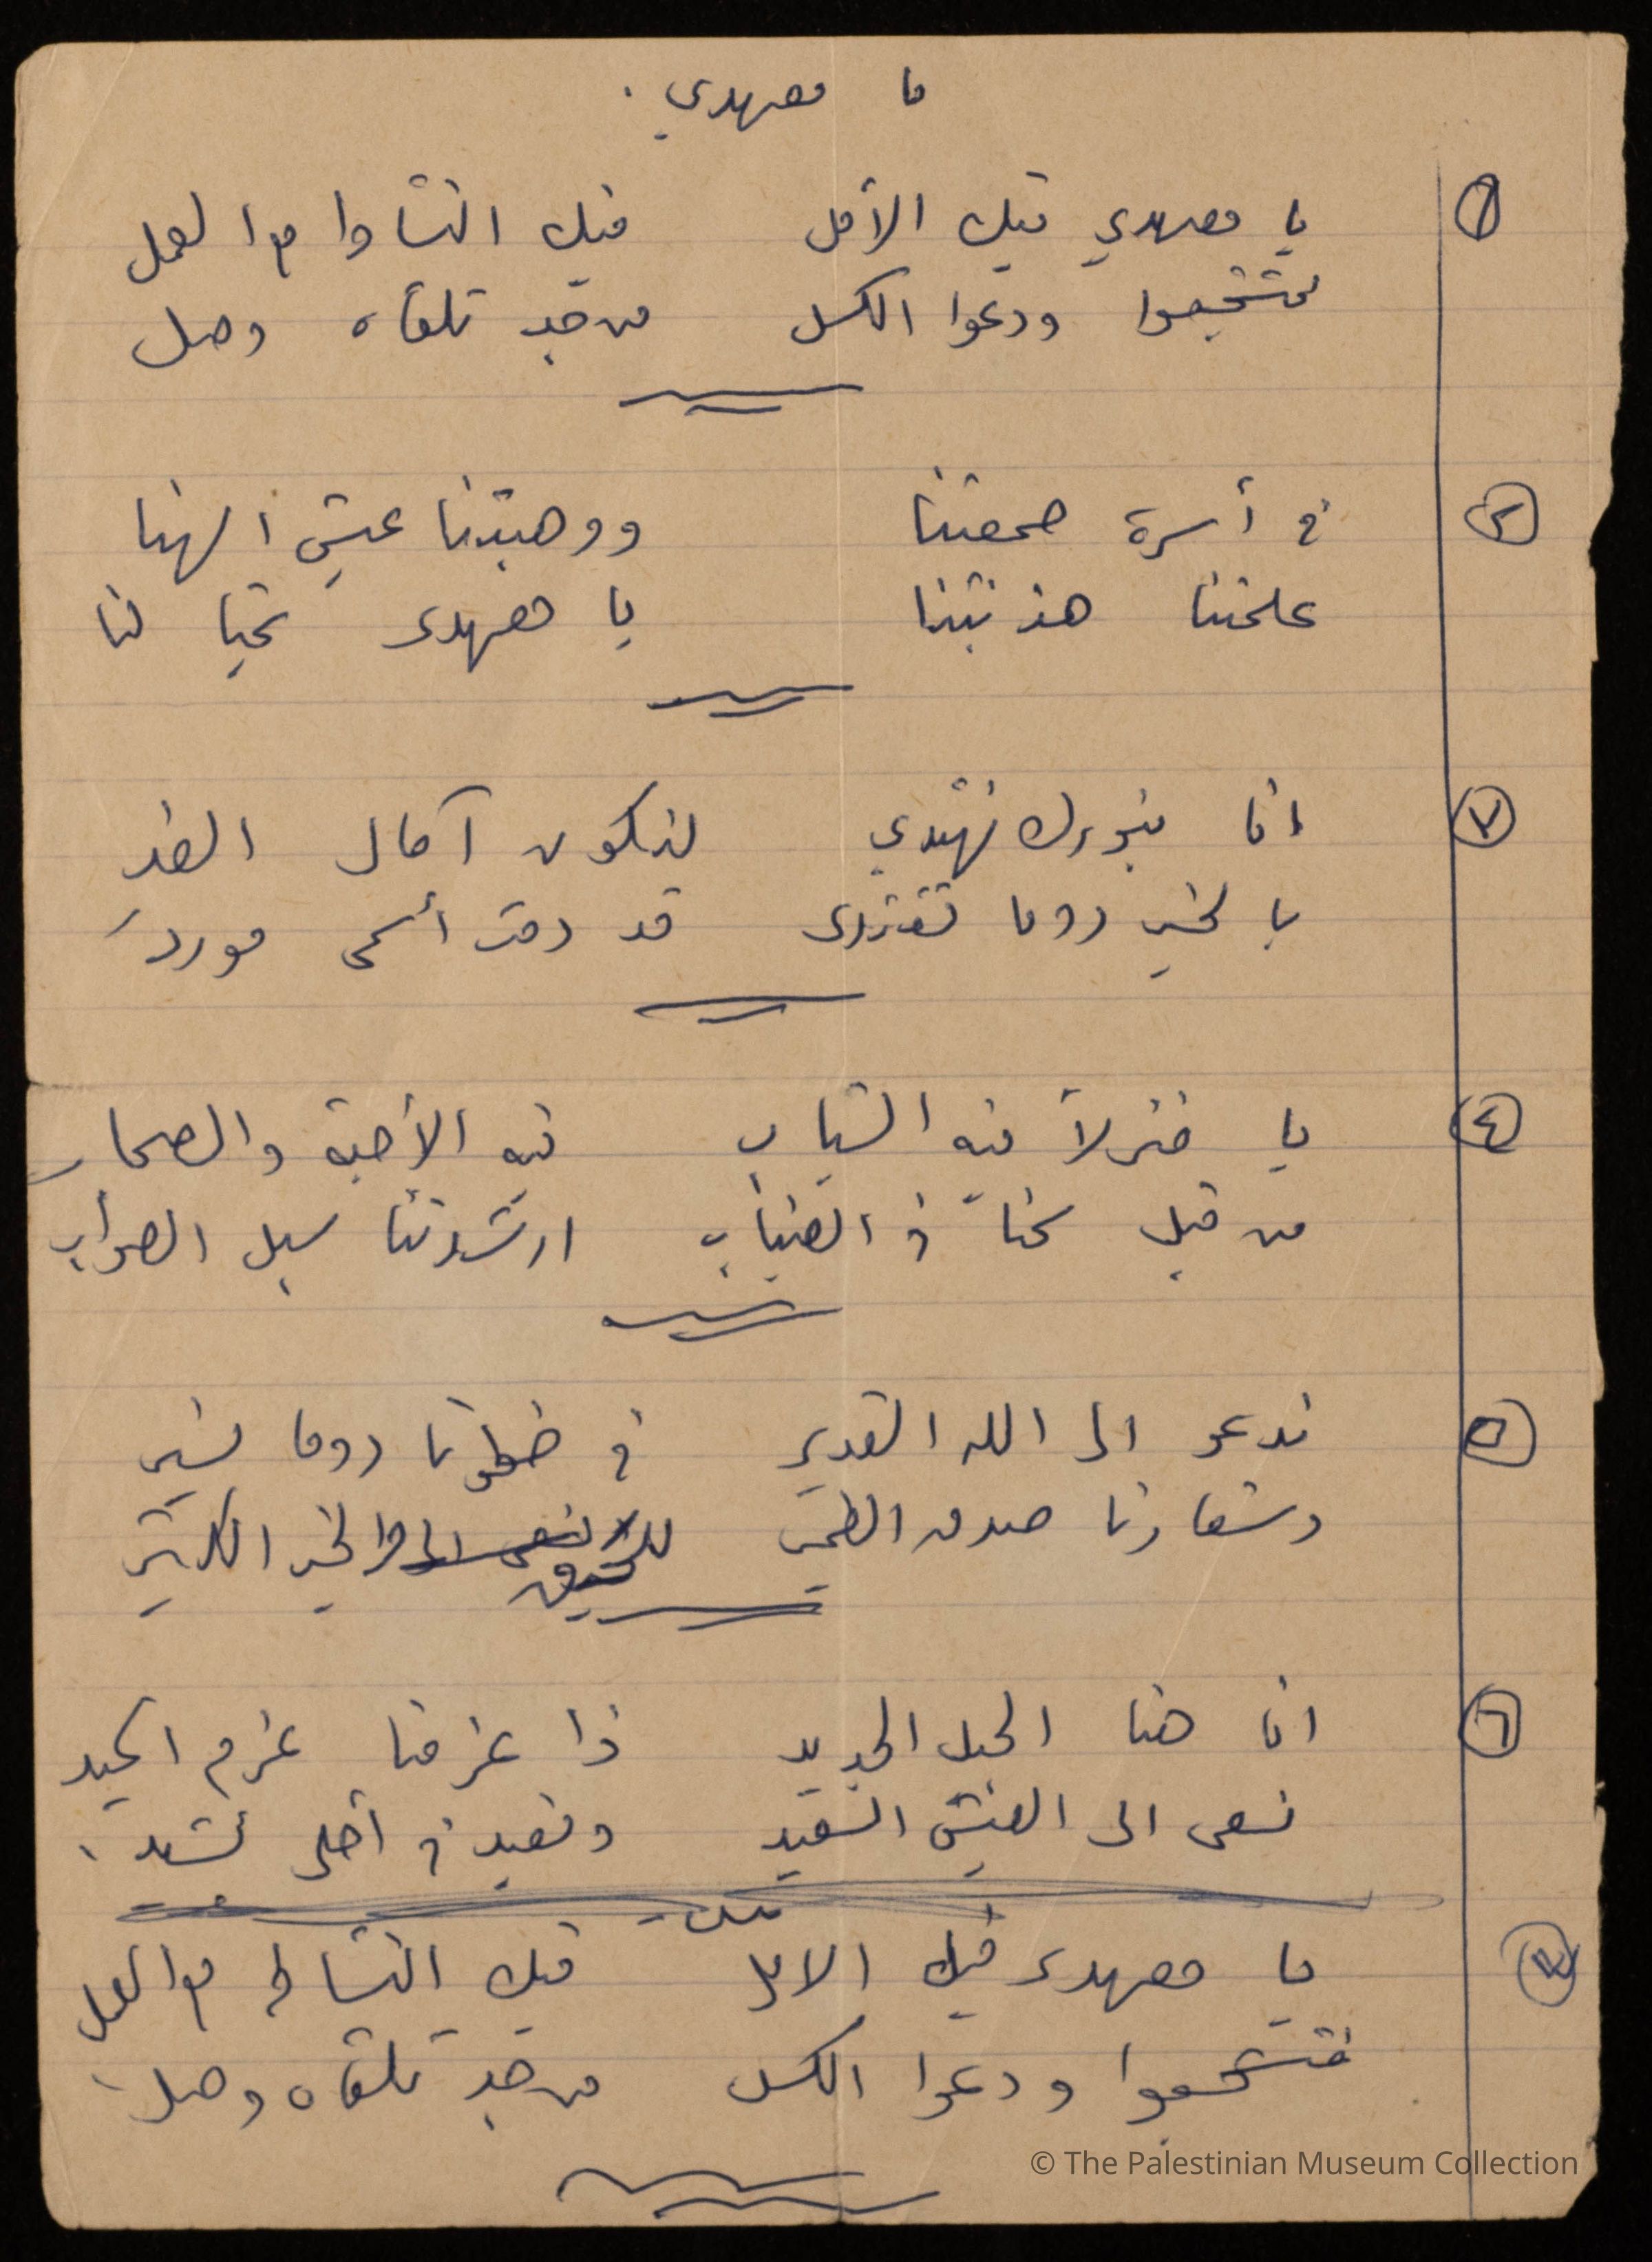 يا معهدي.
① يا معهدي فيك الأمل فيك النشاط مع العمل
فتشجعوا ودعوا الكسل من جد تلقاه وصل
② في أسرة جمعتنا ووهبتنا عيش الهنا
علمتنا هذبتنا يا معهدي تحيا لنا
③ انا بنورك نهتدي لنكون آمال الغد
بالخير دوما تغتدي قد دمت أسمى مورد
④ يا منزلاً فيه الشباب فيه الأحبة والصحاب
من قبل كنا في الضباب ارشدتنا سبل الصواب
⑤ ندعو الى الله القدير في خطونا دوما يسير
وشعارنا صدق الضمير والخير الكثير
⑥ انا هنا الجيل الجديد ذا عزمنا عزم
نسعى الى العيش السعيد ونعيد في أحلى نشيد.
⑦ يا معهدي فيك الامل فيك النشاط مع العمل
فتشجعوا ودعوا الكسل من جد تلقاه وصل.
© The Palestinian Museum Collection